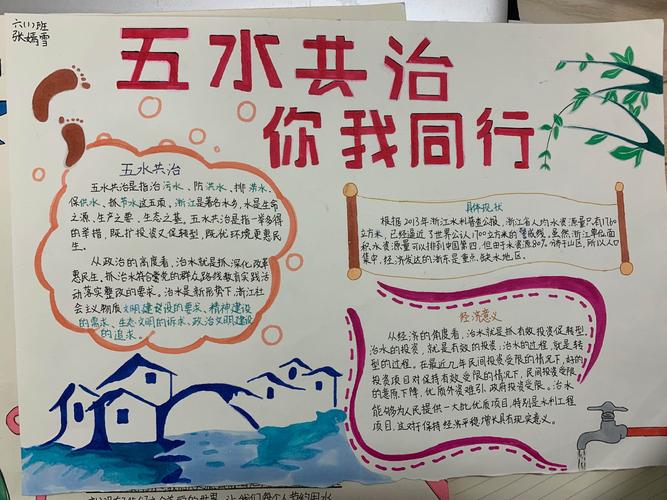 六(1)班
张嫣雪
五水共治
你我同行
五水共治
五水共治是指治污水、防洪水、排涝水、
保供水、抓节水这五项,浙江是著名水乡,水是生命
之源、生产之要、生态之基。五水共治是指一举多得
的举措,既扩投资又促转型,既优环境更惠民
生。
从政治的高度看,治水就是抓深化改革
惠民生。抓治水符合党的群众路线教育实践活
动落实整改的要求。治水是新形势下,浙江社
会主义物质文明建设的要求、精神建设
的需求、生态文明的诉求、政治文明建设
的追求。
具体现状
根据2013年浙江水利普查公报,浙江省人均水资源只有1760
立方米,已经逼近了世界公认1700立方米的警戒线。虽然浙江单位面
积水资源量可以排到中国第四,但由于水资源80%分布于山区,所以人口
集中,经济发达的浙东是重点缺水地区。
经济意义
从经济的角度看,治水就是抓有效投资促转型,
治水的投资,就是有效的投资,治水的过程,就是转
型的过程。在最近几年民间投资受限的情况下,好的
投资项目对保持有效受限的情况下,民间投资受限
的意愿下降,优质外资难引,政府投资受限。治水
能够为人民提供一大批优质项目,特别是水利工程
项目,这对于保持经济平稳增长具有现实意义。